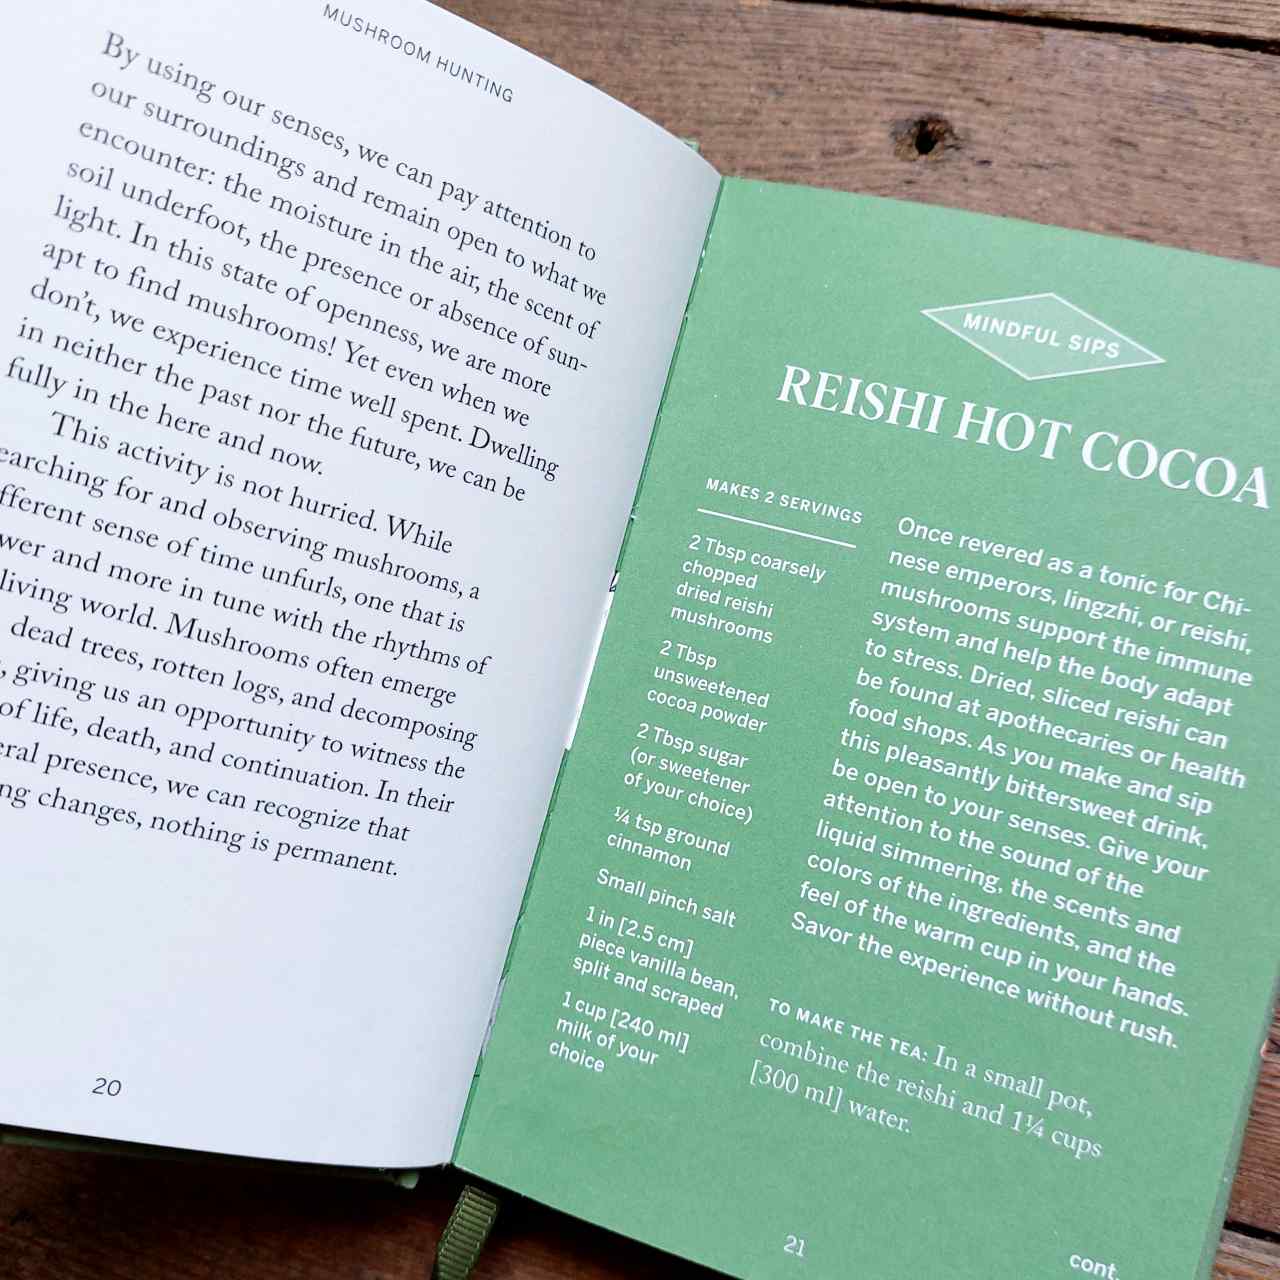 MUSHROOM HUNTING
By using our senses, we can pay attention to
our surroundings and remain open to what we
encounter: the moisture in the air, the scent of
soil underfoot, the presence or absence of sun-
light. In this state of openness, we are more
apt to find mushrooms! Yet even when we
don't, we experience time well spent. Dwelling
in neither the past nor the future, we can be
fully in the here and now.
This activity is not hurried. While
earching for and observing mushrooms, a
fferent sense of time unfurls, one that is
wer and more in tune with the rhythms of
living world. Mushrooms often emerge
dead trees, rotten logs, and decomposing
, giving us an opportunity to witness the
of life, death, and continuation. In their
eral presence, we can recognize that
ng changes, nothing is permanent.
20
MINDFUL SIPS
REISHI HOT COCOA
MAKES 2 SERVINGS
2 Tbsp coarsely
chopped
dried reishi
mushrooms
2 Tbsp
unsweetened
cocoa powder
2 Tbsp sugar
(or sweetener
of your choice)
¼ tsp ground
cinnamon
Small pinch salt
1 in [2.5 cm]
piece vanilla bean,
split and scraped
1 cup [240 ml]
milk of your
choice
Once revered as a tonic for Chi-
nese emperors, lingzhi, or reishi,
mushrooms support the immune
system and help the body adapt
to stress. Dried, sliced reishi can
be found at apothecaries or health
food shops. As you make and sip
this pleasantly bittersweet drink,
be open to your senses. Give your
attention to the sound of the
liquid simmering, the scents and
colors of the ingredients, and the
feel of the warm cup in your hands.
Savor the experience without rush.
TO MAKE THE TEA: In a small pot,
combine the reishi and 1¼ cups
[300 ml] water.
21
cont.